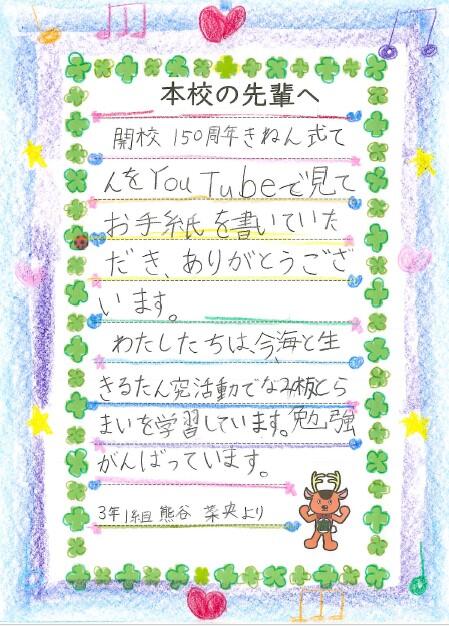 本校の先輩へ
開校150周年きねん式て
んをYouTubeで見て
お手紙を書いていた
だき、ありがとうござ
います。
わたしたちは、今、海と生
きるたん究活動で
まいを学習しています。勉強
がんばっています。
3年1組 熊谷 菜央より